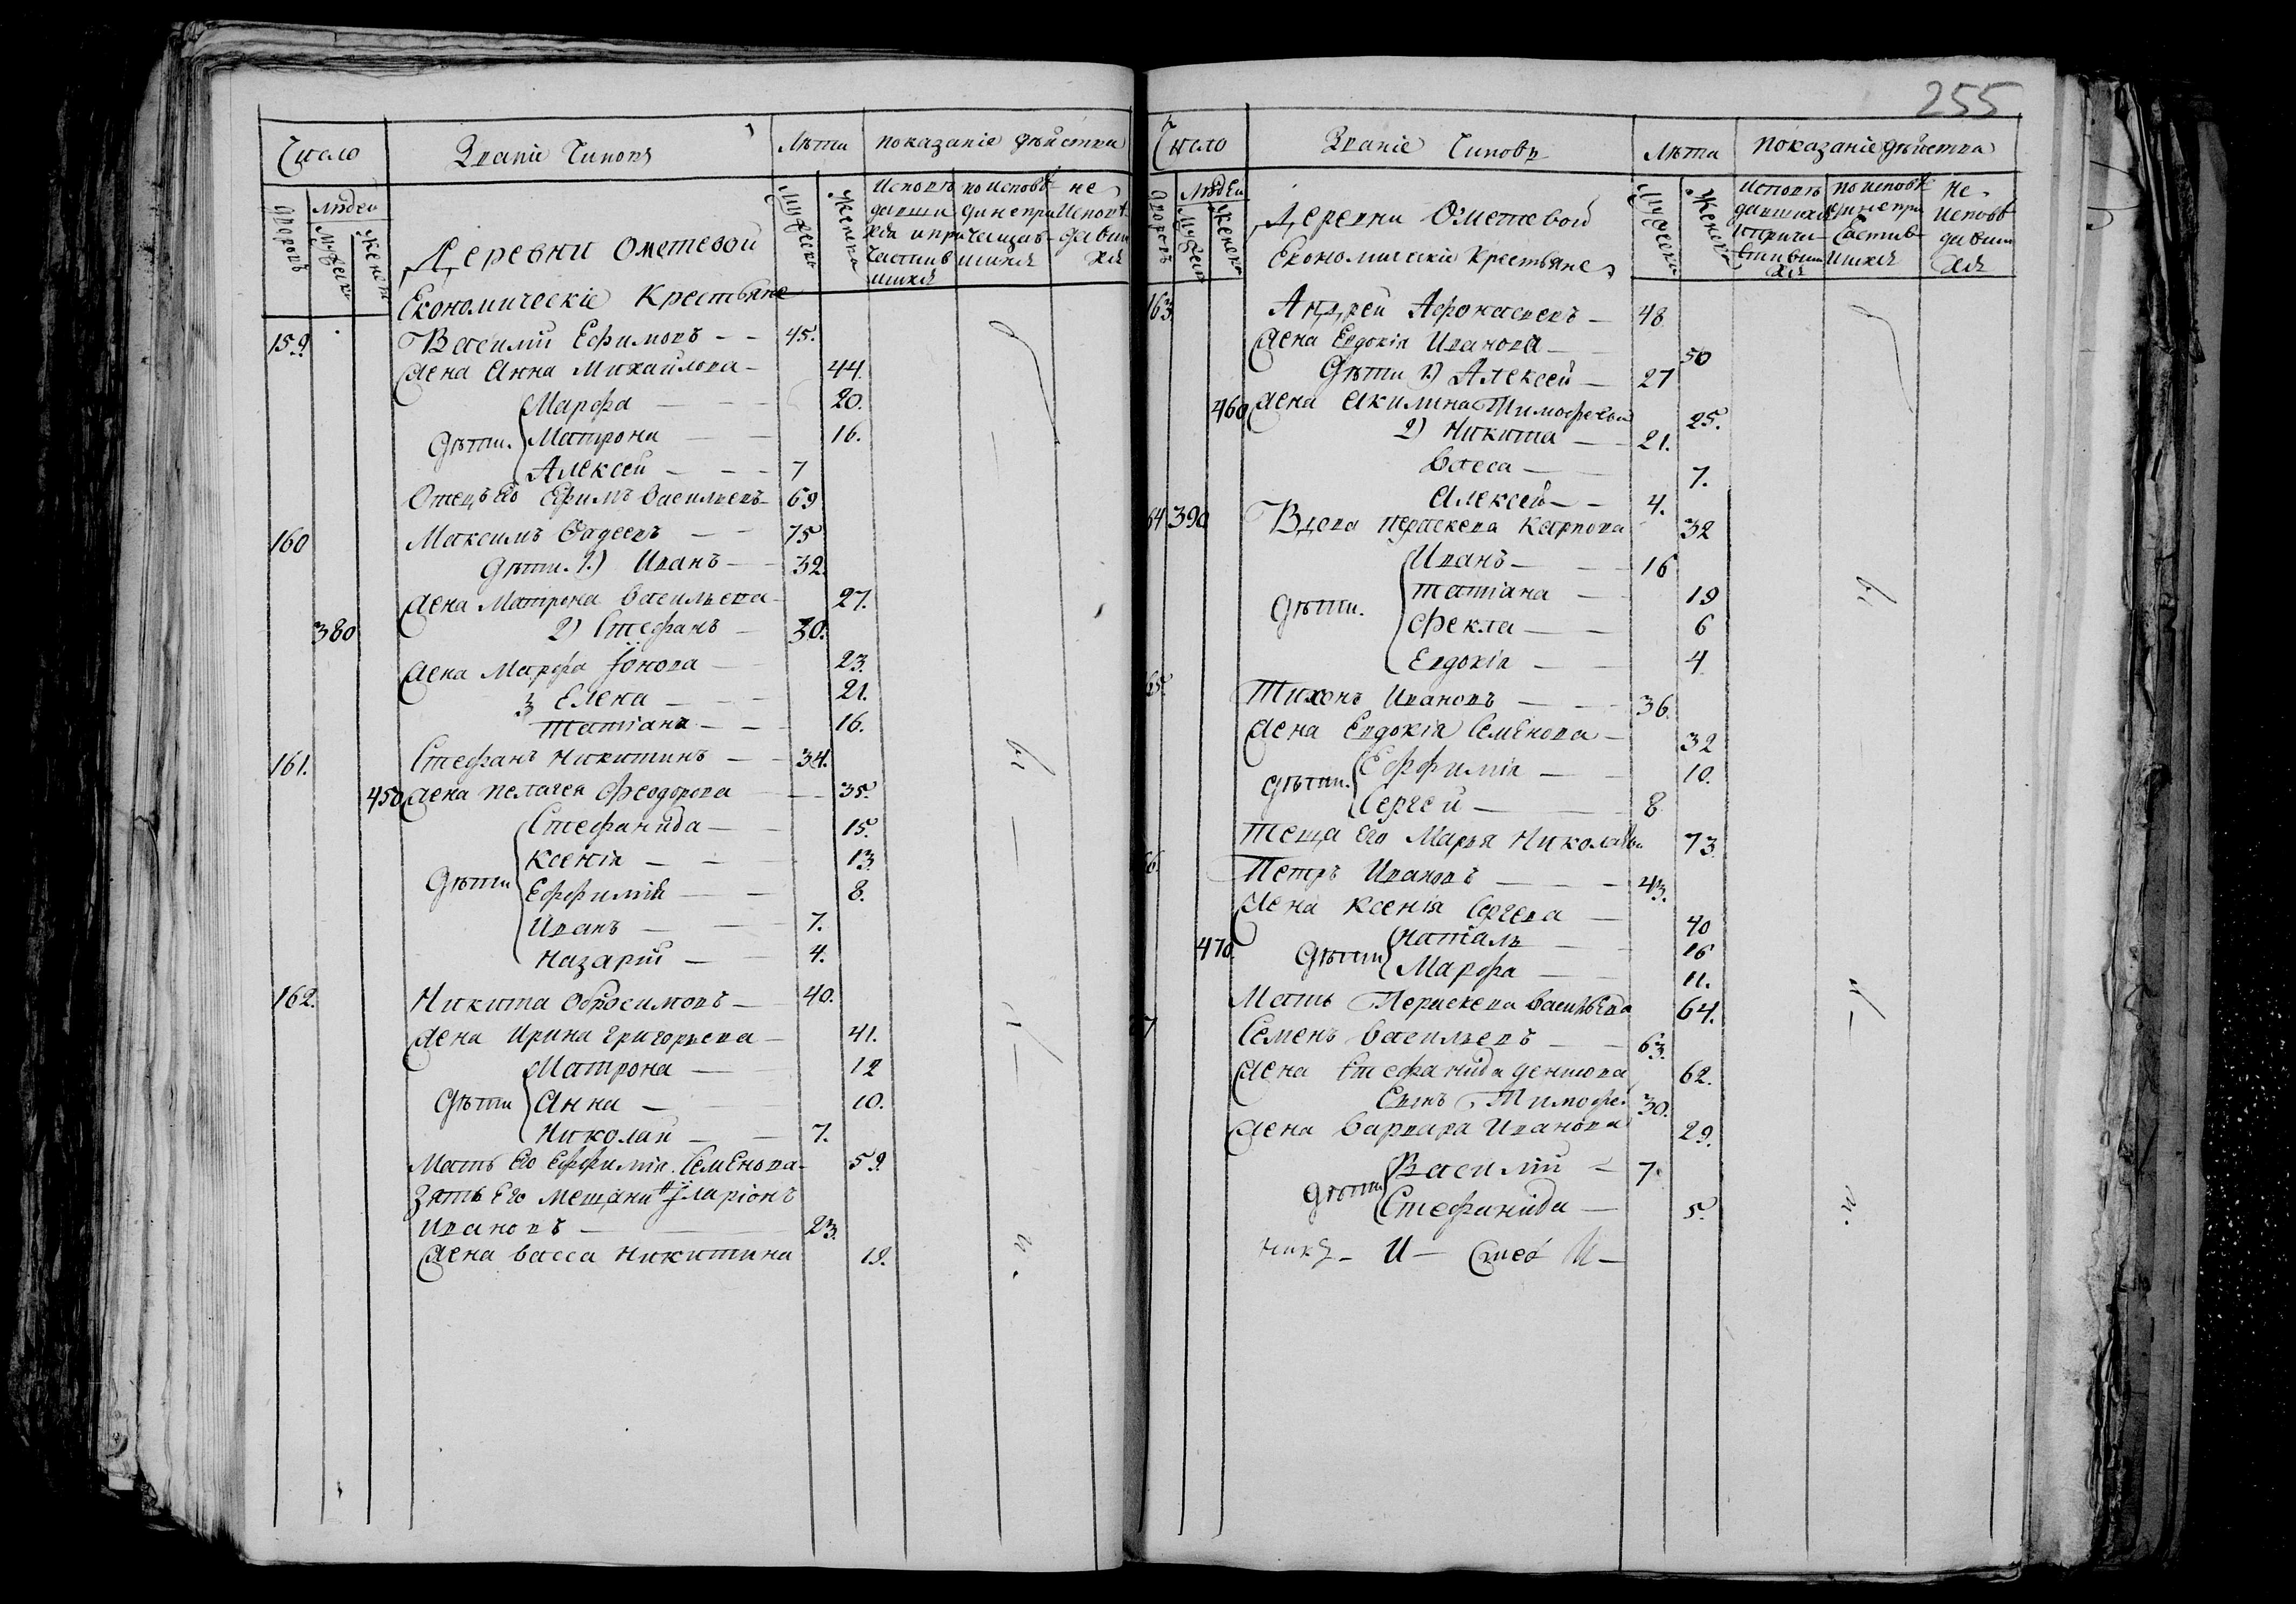 Число Званіе Чиновъ Лѣта показаніе дѣйства
дворовъ Людей Мужеска Женска Исповѣ по исповѣ не
давши дине при Исповѣ
хся и при чащав давши
частив шихся хся
шихся
Деревни Ометевой
Економическіе Крестьяне
159. Василій Ефимовъ 45.
Жена Анна Михайлова 44.
Марфа 20.
Дѣти. Матрона 16.
Алексей 7
Отецъ Его Ефимъ Васильевъ 69
160 Максимъ Фадеевъ 75
Дѣти. 1.) Иванъ 32.
Жена Матрена Васильева 27.
380 2) Стефанъ 30.
Жена Марфа Іонова 23.
3 Елена 21.
Татіана 16.
161. Стефанъ Никитинъ 34.
450 Жена Пелагея Феодорова 35.
Стефанида 15.
Ксенія 13
Дѣти Ефимія 8.
Иванъ 7.
Назарій 4.
162. Никита Обросимовъ 40.
Жена Ирина Григорьева 41.
Матрона 12
Дѣти Анна 10.
Николай 7.
Мать Его Ефимія Семенова 59.
Зять Его мещанинъ Іларіонъ
Ивановъ 23.
Жена Васса Никитина 19.
255
Число Званіе Чиновъ Лѣта показаніе дѣйства
дворовъ Людей Мужеска Женска Исповѣ по исповѣ Не
давшихся дине при исповѣ
и причи частив давши
стивши шихся хся
хся
Деревни Ометевой
Економическіе Крестьяне
163 Андрей Афонасьевъ 48
Жена Евдокія Иванова 50
Дѣти 1.) Алексей 27
460 Жена Акилина Тимофеева 25.
2) Никита 21.
Васса 7.
Алексей 4.
64 390 Вдова Параскева Карпова 32
Иванъ 16
Татіана 19
Дѣти. Фекла 6
Евдокія 4
65. Тихонъ Ивановъ 36.
Жена Евдокія Семенова 32
Дѣти. Ефимія 10.
Сергей 8
Теща Его Марья Николаева 73.
66. Петръ Ивановъ 43.
Жена Ксенія Сергева 40
470 Дѣти Наталь 16
Марфа 11.
Мать Параскева Васильева 64.
67 Семенъ Васильевъ 63.
Жена Стефанида Денисова 62.
Сынъ Тимофей 30.
Жена Варвара Иванова 29.
Дѣти Василій 7.
Стефанида 5.